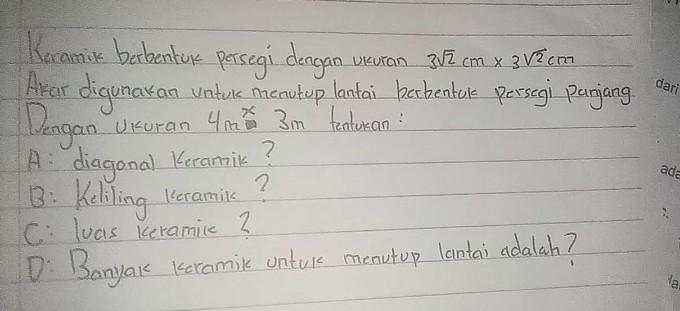 Keramik berbentuk persegi dengan ukuran 3√2 cm x 3√2 cm
Akar digunakan untuk menutup lantai berbentuk persegi panjang
Dengan ukuran 4m x 3m tentukan :
A : diagonal keramik ?
B : Keliling keramik ?
C : luas keramik ?
D : Banyak keramik untuk menutup lantai adalah ?
dari
ada